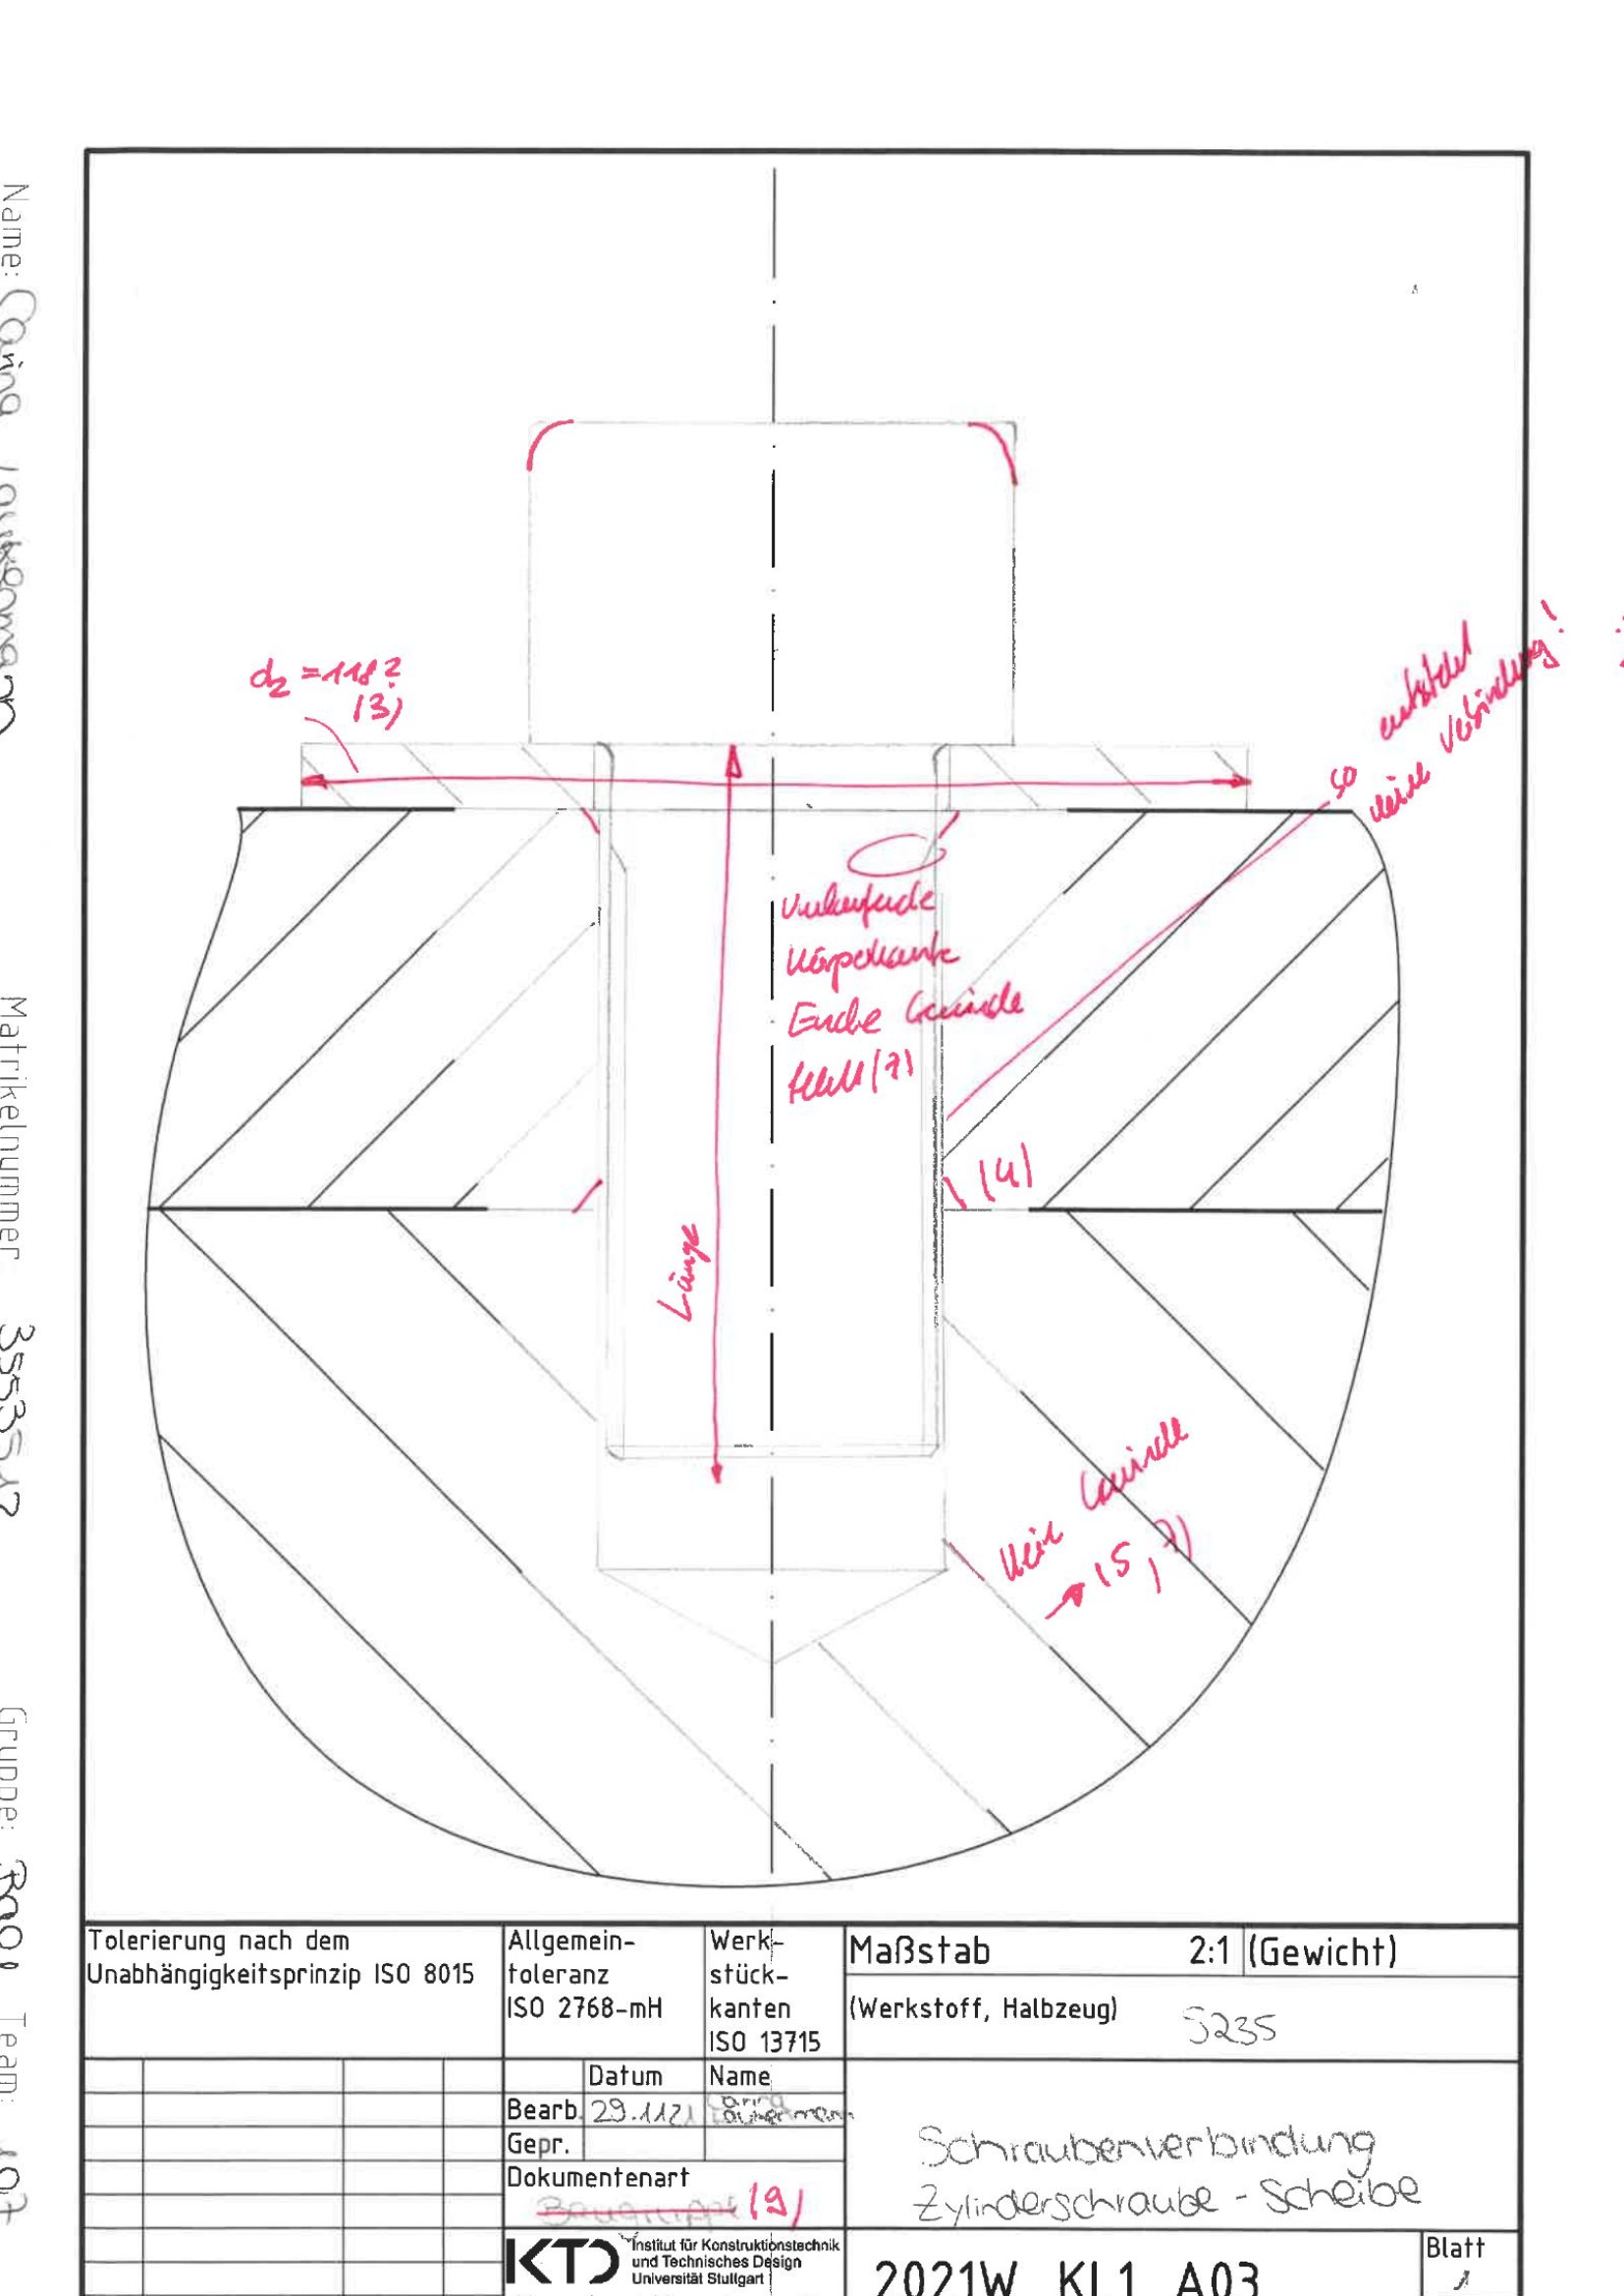 Name: Carina
Matrikelnummer 3553517
Gruppe: Team: 107
d2 = 118?
(3)
so entsteht
keine Verbindung!
Umlaufende
Körperkante
Ende Gewinde
fehlt (7)
(4)
Länge
kein Gewinde
→ (5, 7)
Tolerierung nach dem
Unabhängigkeitsprinzip ISO 8015
Allgemein-
toleranz
ISO 2768-mH
Werk-
stück-
kanten
ISO 13715
Maßstab 2:1 (Gewicht)
(Werkstoff, Halbzeug) S235
Datum Name
Bearb. 29.11.21 Carina
Gepr.
Dokumentenart
Baugruppe (9)
Schraubenverbindung
Zylinderschraube - Scheibe
KTD
Institut für Konstruktionstechnik
und Technisches Design
Universität Stuttgart
2021W KL1 A03
Blatt
1